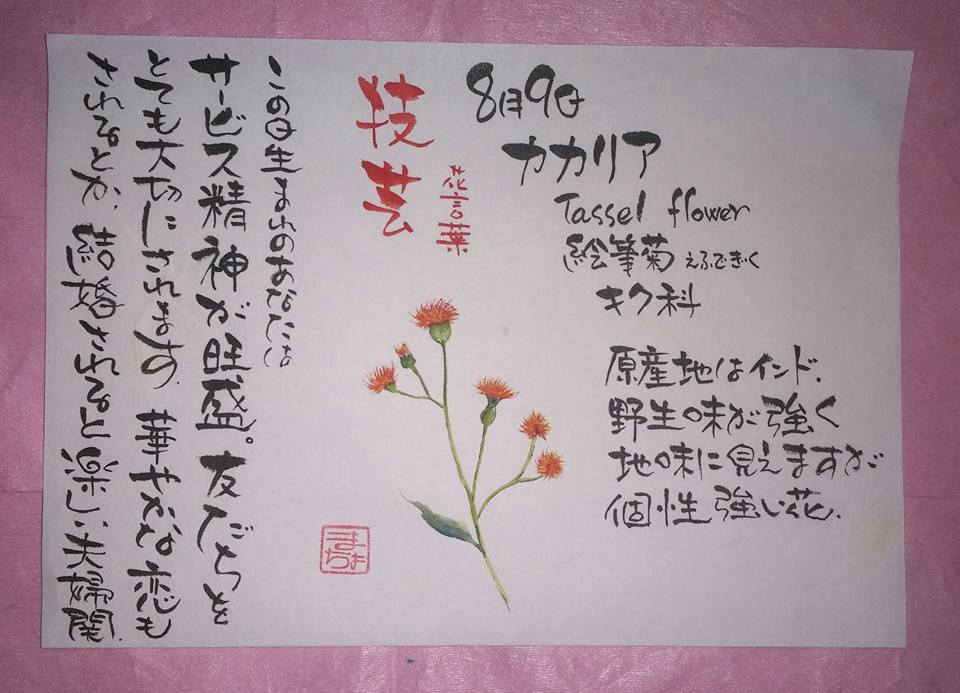 8月9日
カカリア
Tassel flower
絵筆菊 えふでぎく
キク科
原産地はインド.
野生味が強く
地味に見えますが
個性強い花.
花言葉
技芸
この日生まれのあなたは
サービス精神が旺盛。友だちを
とても大切にされます. 華やかな恋も
されるとか. 結婚されると楽しい夫婦関.